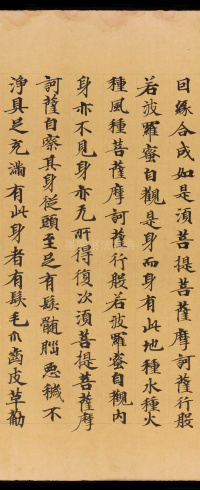 因緣合成如是湏菩提菩薩摩訶薩行般
若波羅蜜自觀是身而身有此地種水種火
種風種菩薩摩訶薩行般若波羅蜜自觀內
身亦不見身亦无所得復次湏菩提菩薩摩
訶薩自察其身從頭至足有髮髓腦惡穢不
淨具足充滿有此身者有髮毛爪齒皮草勸